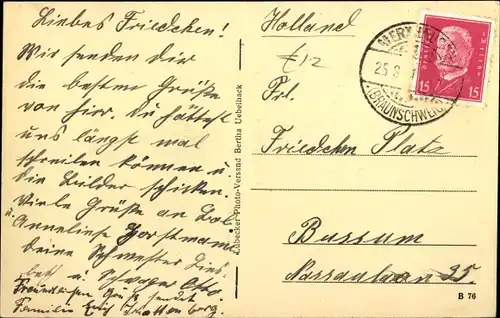 Liebes Friedchen!
Wir senden dir
die besten Grüße
von hier. Du hättest
uns längst mal
schreiben können u.
die Bilder schicken.
Viele Grüße an
u. Anneliese Horstmann
Deine Schwester Lies-
beth u. Schwager Otto.
Freundlichen Gruß sendet
Familie
Lübecker-Photo-Versand Bertha Uebelhack
Holland
Frl.
Friedchen Platz
Bussum
Nassaulaan 25.
B 76
25.8
(BRAUNSCHWEIG)
15 15